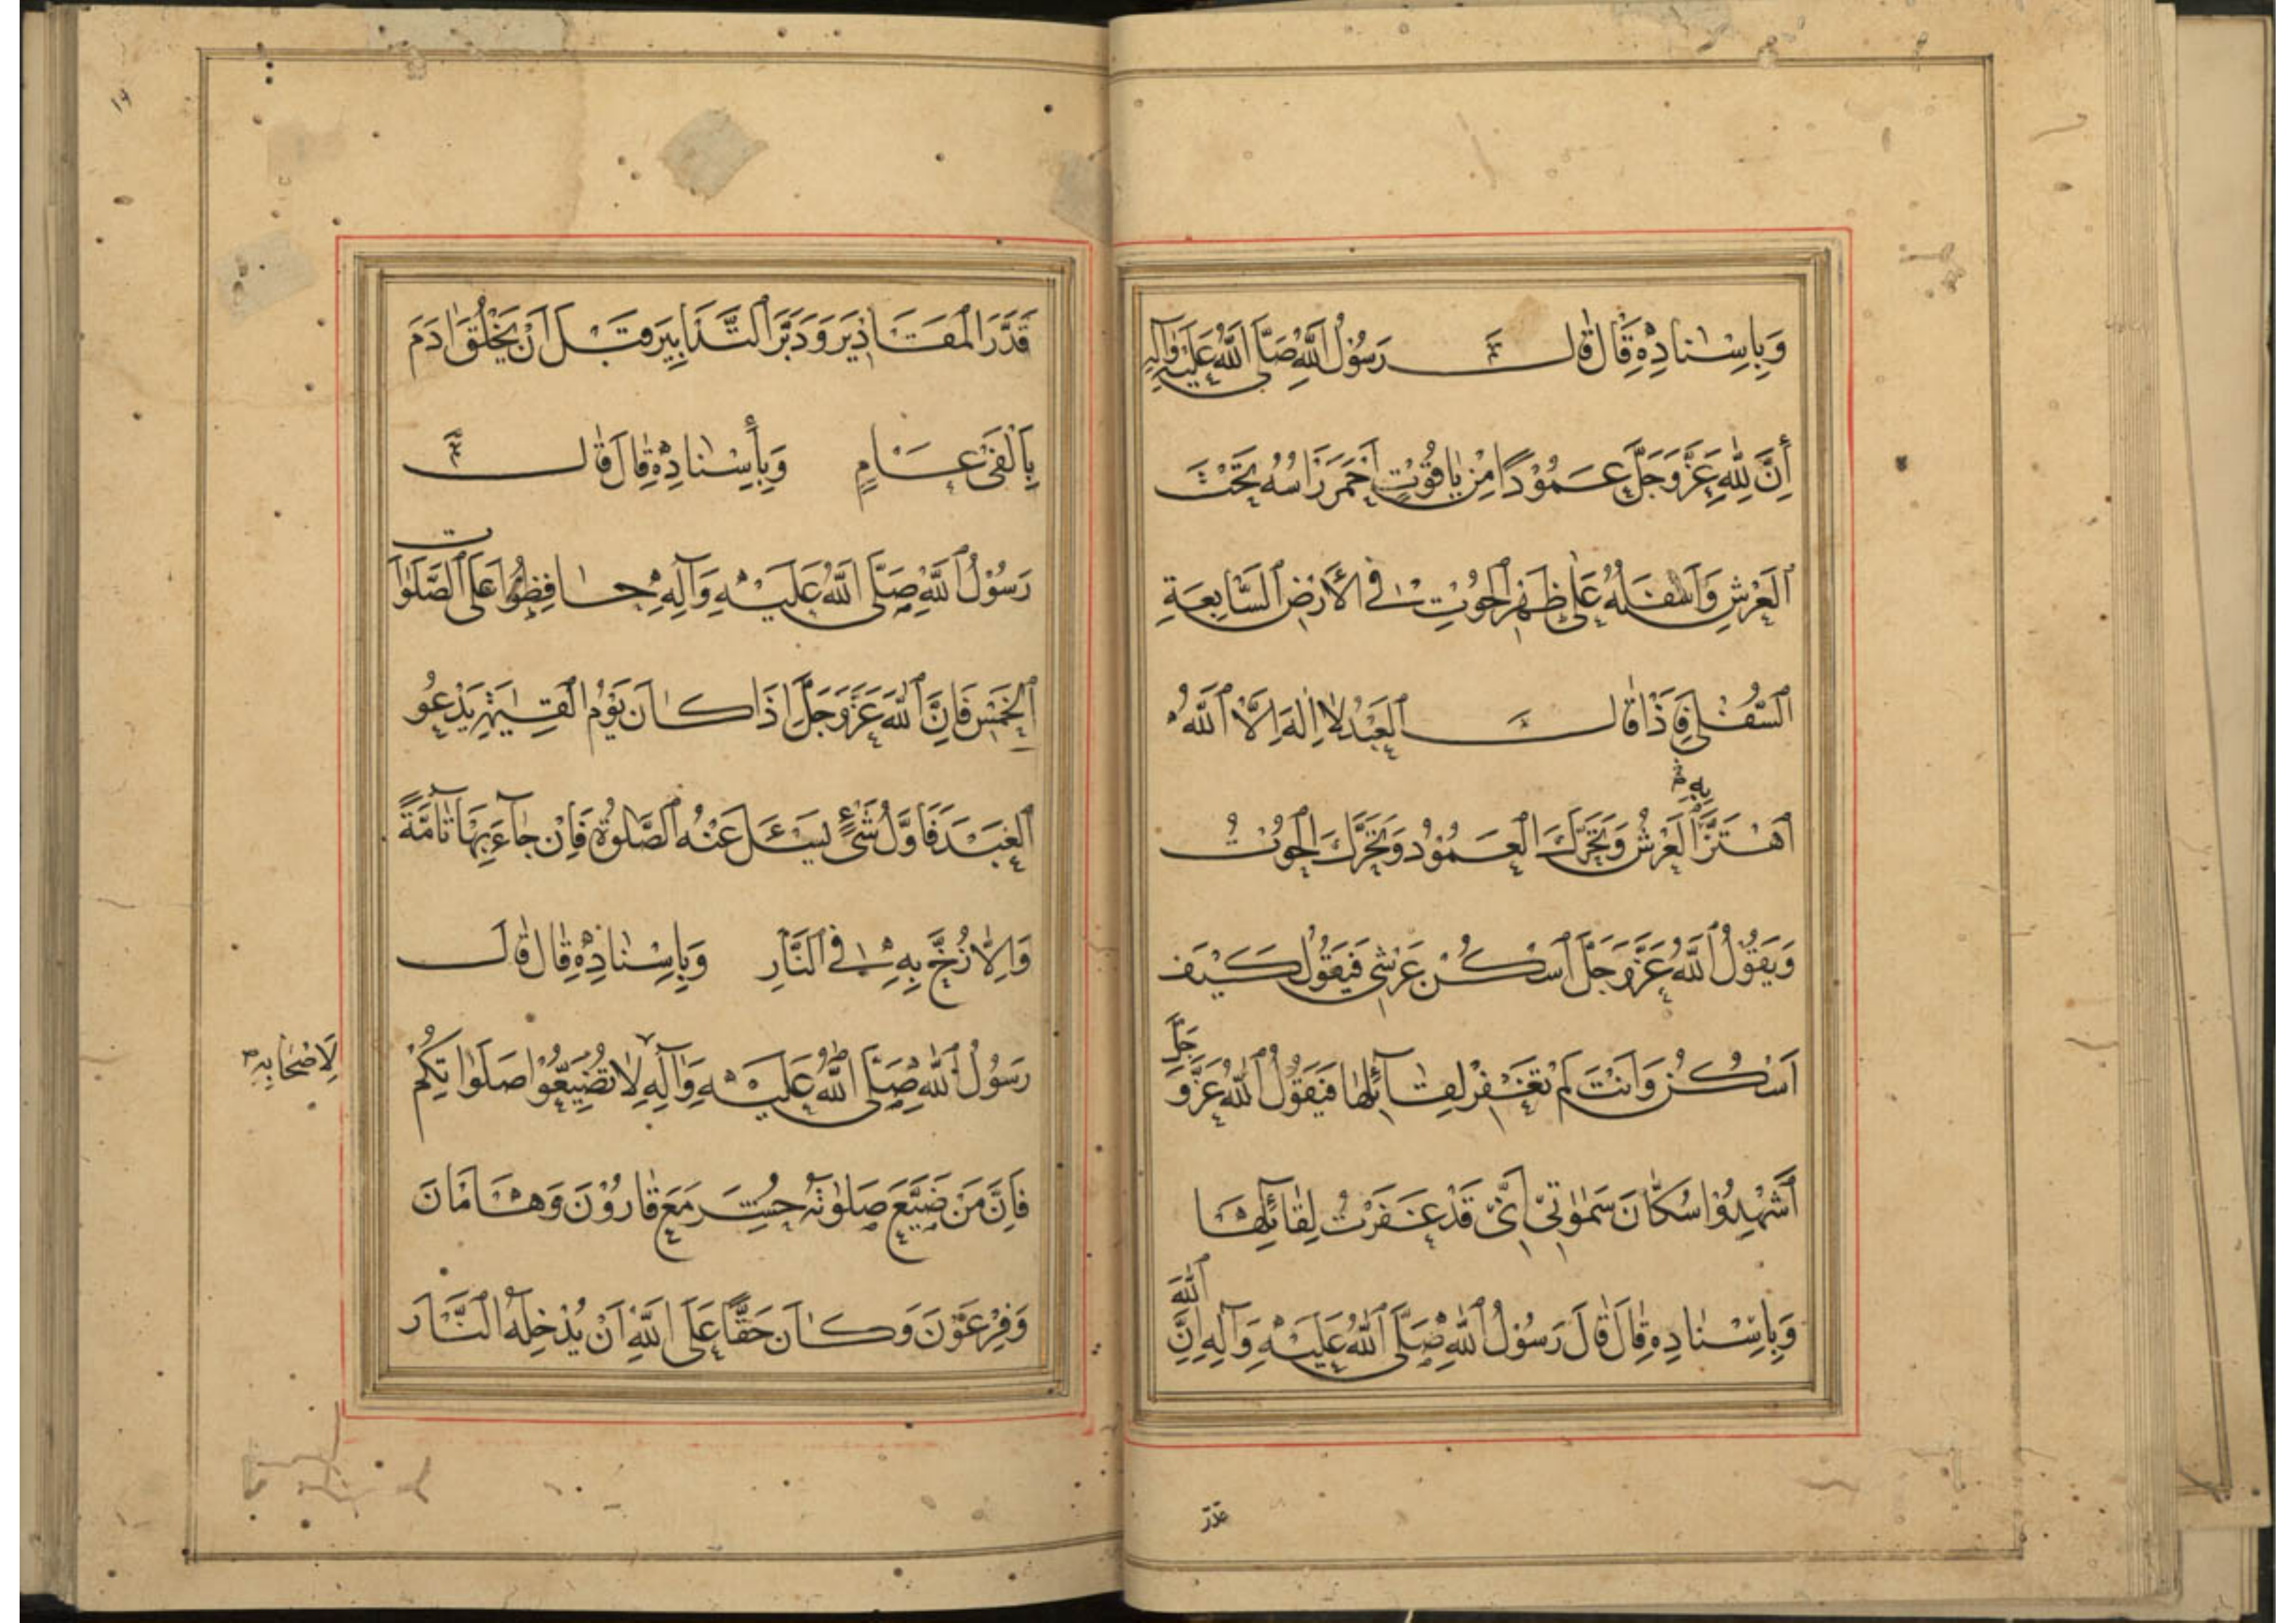 وَبِاِسْنادِهِ قٰالَ قٰالَ رَسُوْلُ اللّٰهِ صَلَّى اللّٰهُ عَلَيْهِ وَآلِهِ
أَنَّ لِلّٰهِ عَزَّ وَجَلَّ عَمُوْدًا مِنْ يٰاقُوْتٍ اَحْمَرَ رَاْسُهُ تَحْتَ
الْعَرْشِ وَاَسْفَلُهُ عَلٰى ظَهْرِ الْحُوْتِ فِى الْأَرْضِ السَّابِعَةِ
السُّفْلٰى فَاِذَا قٰالَ الْعَبْدُ لاٰ اِلٰهَ اِلاَّ اللّٰهُ
اهْتَزَّ الْعَرْشُ وَتَحَرَّكَ الْعَمُوْدُ وَتَحَرَّكَ الْحُوْتُ
وَيَقُوْلُ اللّٰهُ عَزَّ وَجَلَّ اسْكُنْ عَرْشِى فَيَقُوْلُ كَيْفَ
اَسْكُنُ وَاَنْتَ لَمْ تَغْفِرْ لِقٰآئِلِهٰا فَيَقُوْلُ اللّٰهُ عَزَّ وَ
جَلَّ
اَشْهِدُوْا سُكّٰانَ سَمٰوٰاتِىْ اَنِّىْ قَدْ غَفَرْتُ لِقٰائِلِهٰا
وَبِاِسْنٰادِهِ قٰالَ قٰالَ رَسُوْلُ اللّٰهِ صَلَّى اللّٰهُ عَلَيْهِ وَآلِهِ اِنَّ
اللّٰهَ
قَدَّرَ
قَدَّرَ الْمَقَاذِيَر وَدَبَّرَ التَّدَابِيَر قَبْلَ اَنْ يَخْلُقَ اٰدَمَ
بِاَلْفَىْ عَامٍ وَبِأِسْنٰادِهِ قٰالَ قٰالَ
رَسُوْلُ اللّٰهِ صَلَّى اللّٰهُ عَلَيْهِ وَآلِهِ حٰافِظُوْا عَلَى الصَّلَوٰات
الْخَمْسِ فَاِنَّ اللّٰهَ عَزَّ وَجَلَّ اِذَا كٰانَ يَوْمُ الْقِيٰمَةِ يَدْعُو
الْعَبْدَ فَاَوَّلُ شَىْءٍ يُسْئَلُ عَنْهُ الصَّلوٰةُ فَاِنْ جٰآءَ بِهَا تَآمَّةً
وَاِلاّٰ زُخَّ بِهِ فِى النَّارِ وَبِاِسْنٰادِهِ قٰالَ قٰالَ
رَسُوْلُ اللّٰهِ صَلَّى اللّٰهُ عَلَيْهِ وَآلِهِ لاٰ تُضَيِّعُوْا صَلَوٰاتِكُمْ
لِاَصْحٰابِهِ
فَاِنَّ مَنْ ضَيَّعَ صَلوٰتَهُ حُشِرَ مَعَ قٰارُوْنَ وَهٰامٰانَ
وَفِرْعَوْنَ وَكٰانَ حَقًّا عَلَى اللّٰهِ اَنْ يُدْخِلَهُ النَّارَ